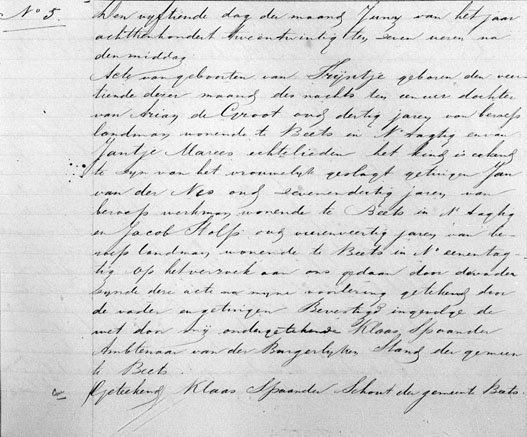 No 5.
Den vyftiende dag der maand Juny van het jaar
achttienhonderd tweentwintig ten zeven uren na
den middag
Acte van geboorten van Trijntje geboren den veer-
tiende dezer maand des nachts ten een ure dochter
van Arian de Groot oud dertig jaren van beroep
landman wonende te Beets in No taghtig en van
Jantje Marees echtelieden het kind is erkend
te zyn van het vrouwelyk geslagt getuigen Jan
van der Nes oud zevenendertig jaren van
beroep werkman wonende te Beets in No taghtig
en Jacob Stolp oud vierenveertig jaren van be-
roep landman wonende te Beets in No eenentag-
tig op het verzoek aan ons gedaan door de vader
zynde deze acte na myne voorlezing getekend door
de vader en getuigen Bevestigd ingevolge de
wet door mij ondergetekende Klaas Spaander
Ambtenaar van der Burgerlyken Stand der gemeen
te Beets
Getekend Klaas Spaander Schout der gemeente Beets.